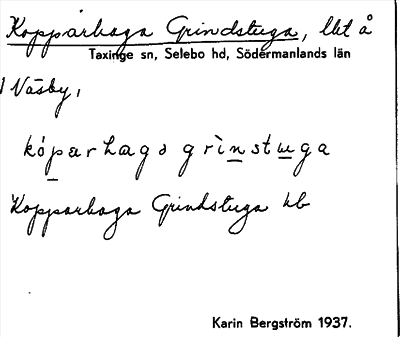 Kopparhaga Grindstuga, lht å
Taxinge sn, Selebo hd, Södermanlands län
Näsby,
kóparhaga grìnstuga
Kopparhaga Grindstuga hb
Karin Bergström 1937.